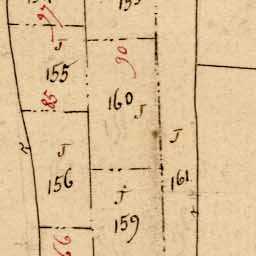 97
J
155
85
90
160
J
J
156
J
161
J
159